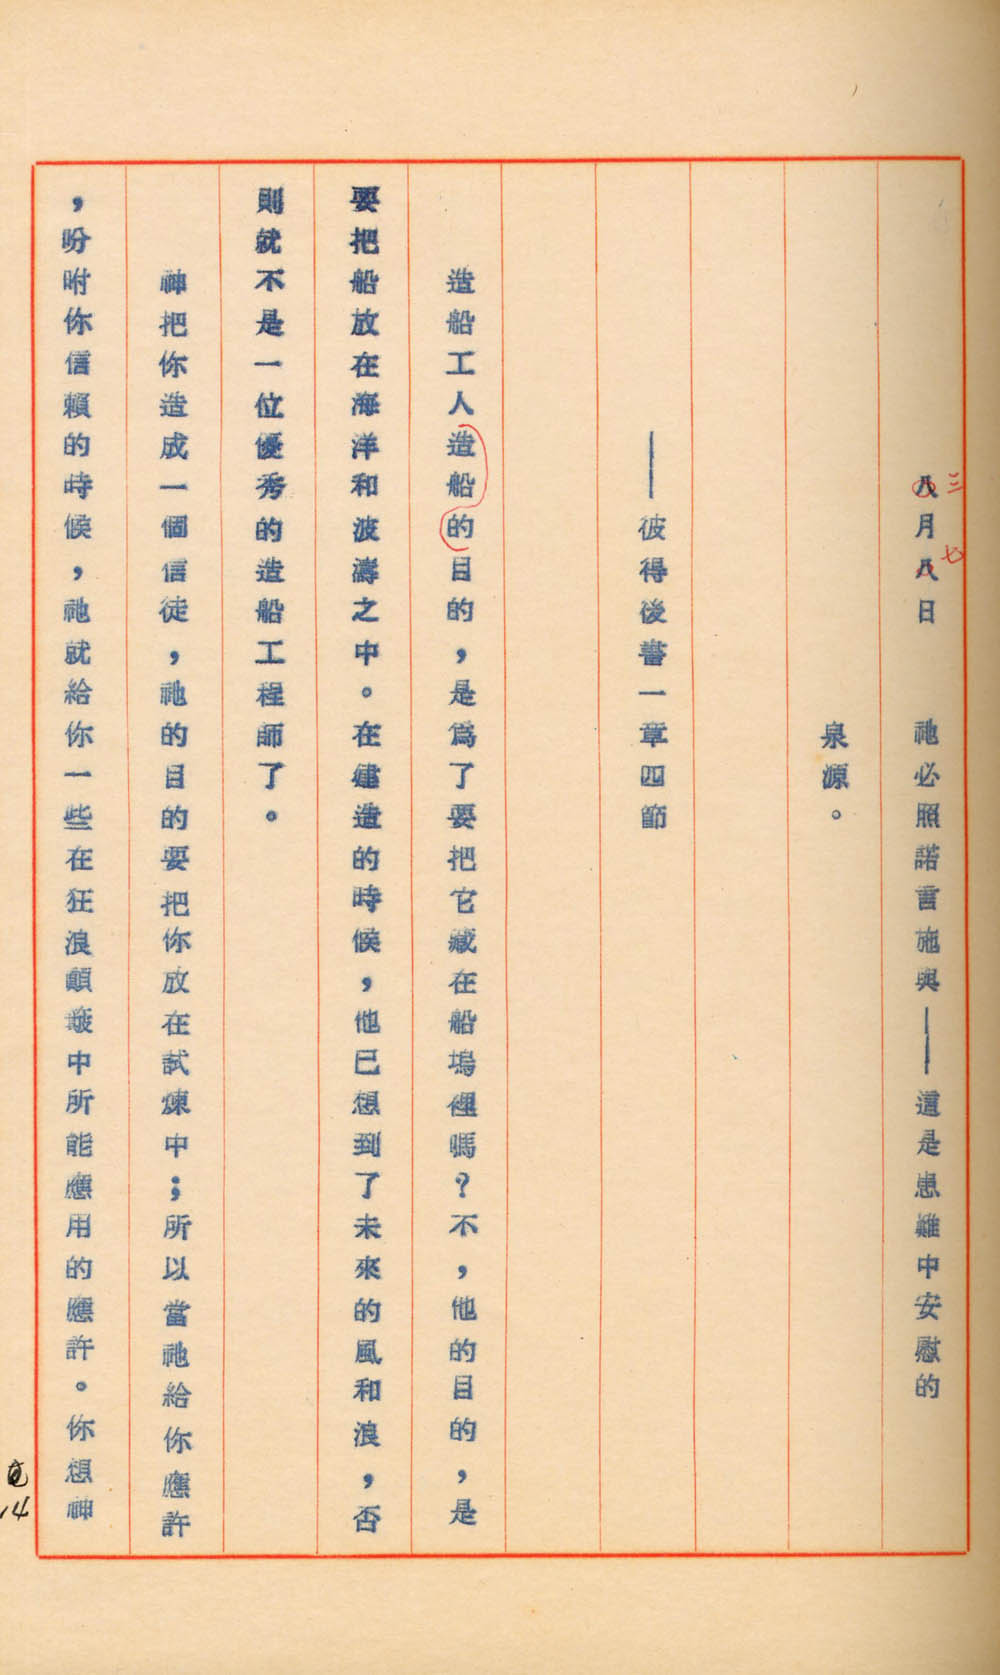 八月八日　祂必照諾言施與——這是患難中安慰的
三
七
泉源。
——彼得後書一章四節
造船工人造船的目的，是爲了要把它藏在船塢裡嗎？不，他的目的，是
要把船放在海洋和波濤之中。在建造的時候，他已想到了未來的風和浪，否
則就不是一位優秀的造船工程師了。
神把你造成一個信徒，祂的目的要把你放在試煉中；所以當祂給你應許
，吩咐你信賴的時候，祂就給你一些在狂浪顛簸中所能應用的應許。你想神
14